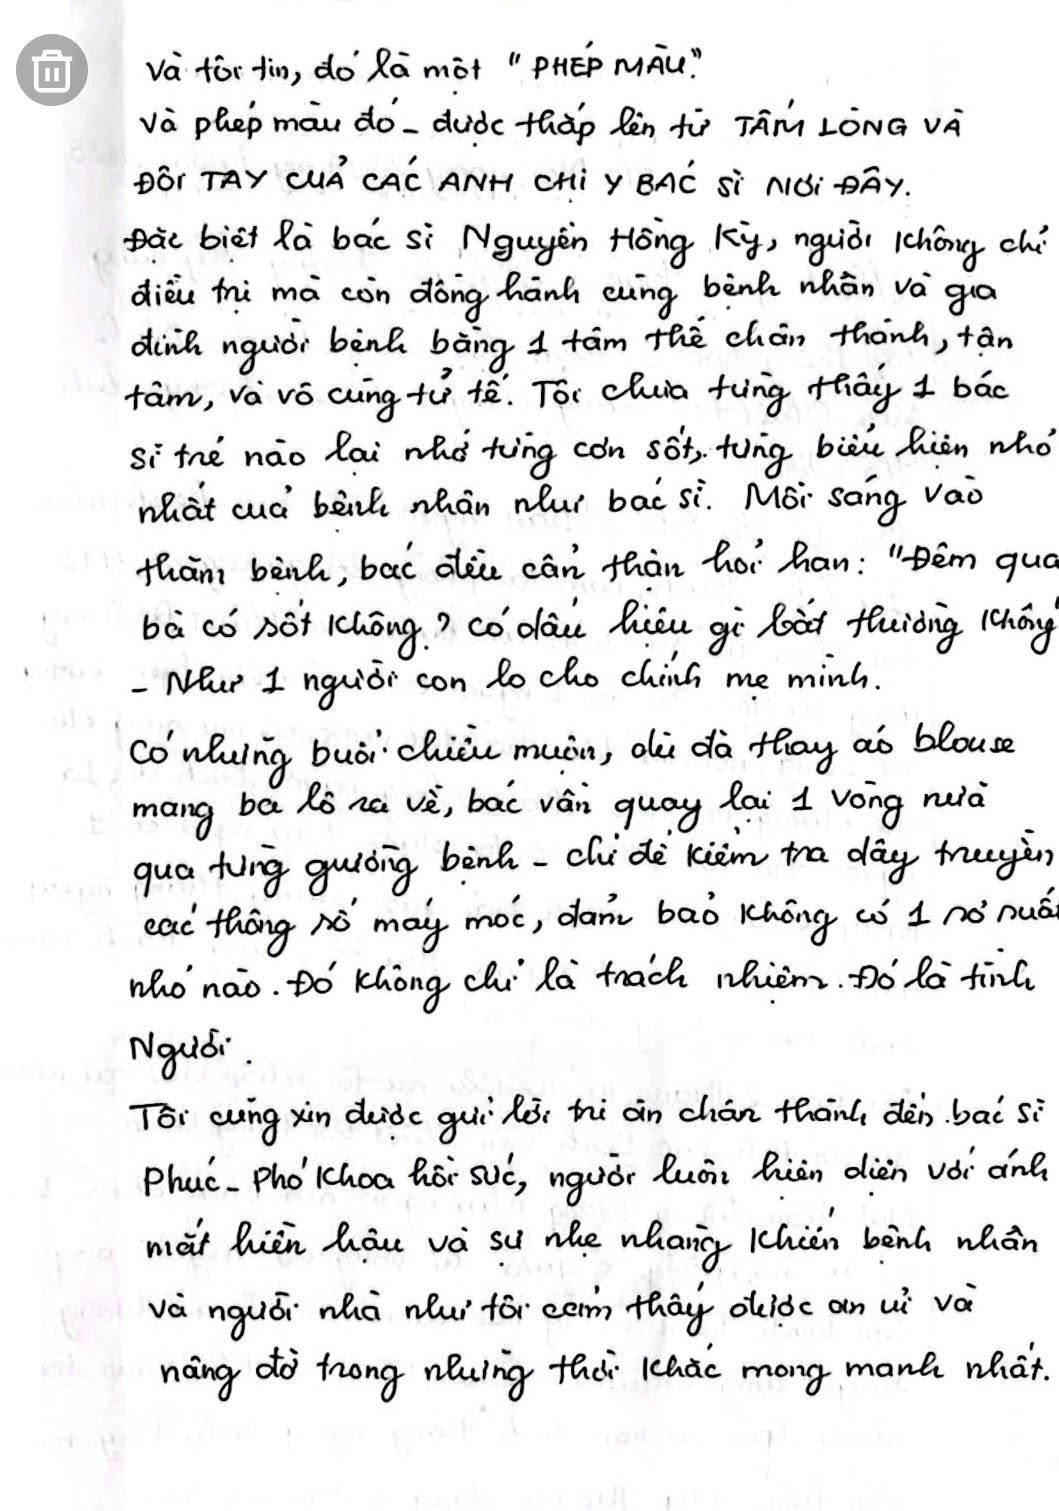 Và tôi tin, đó là một "PHÉP MÀU".
Và phép màu đó - được thắp lên từ TẤM LÒNG VÀ
ĐÔI TAY CUẢ CÁC ANH CHỊ Y BÁC SĨ NƠI ĐÂY.
Đặc biệt là bác sĩ Nguyễn Hồng Kỳ, người không chỉ
điều trị mà còn đồng hành cùng bệnh nhân và gia
đình người bệnh bằng 1 tâm thế chân thành, tận
tâm, và vô cùng tử tế. Tôi chưa từng thấy 1 bác
sĩ trẻ nào lại nhớ từng cơn sốt, từng biểu hiện nhỏ
nhất cuả bệnh nhân như bác sĩ. Mỗi sáng vào
thăm bệnh, bác đều cẩn thận hỏi han: "Đêm qua
bà có sốt không? có dấu hiệu gì bất thường không
- Như 1 người con lo cho chính mẹ mình.
Có những buổi chiều muộn, dù đã thay áo blouse
mang ba lô ra về, bác vẫn quay lại 1 vòng nữa
qua từng giường bệnh - chỉ để kiểm tra dây truyền
các thông số máy móc, đảm bảo không có 1 sơ suất
nhỏ nào. Đó không chỉ là trách nhiệm. Đó là tình
Người.
Tôi cũng xin được gửi lời tri ân chân thành đến bác sĩ
Phúc - Phó Khoa hồi sức, người luôn hiện diện với ánh
mắt hiền hậu và sự nhẹ nhàng khiến bệnh nhân
và người nhà như tôi cảm thấy được an ủi và
nâng đỡ trong những thời khắc mong manh nhất.